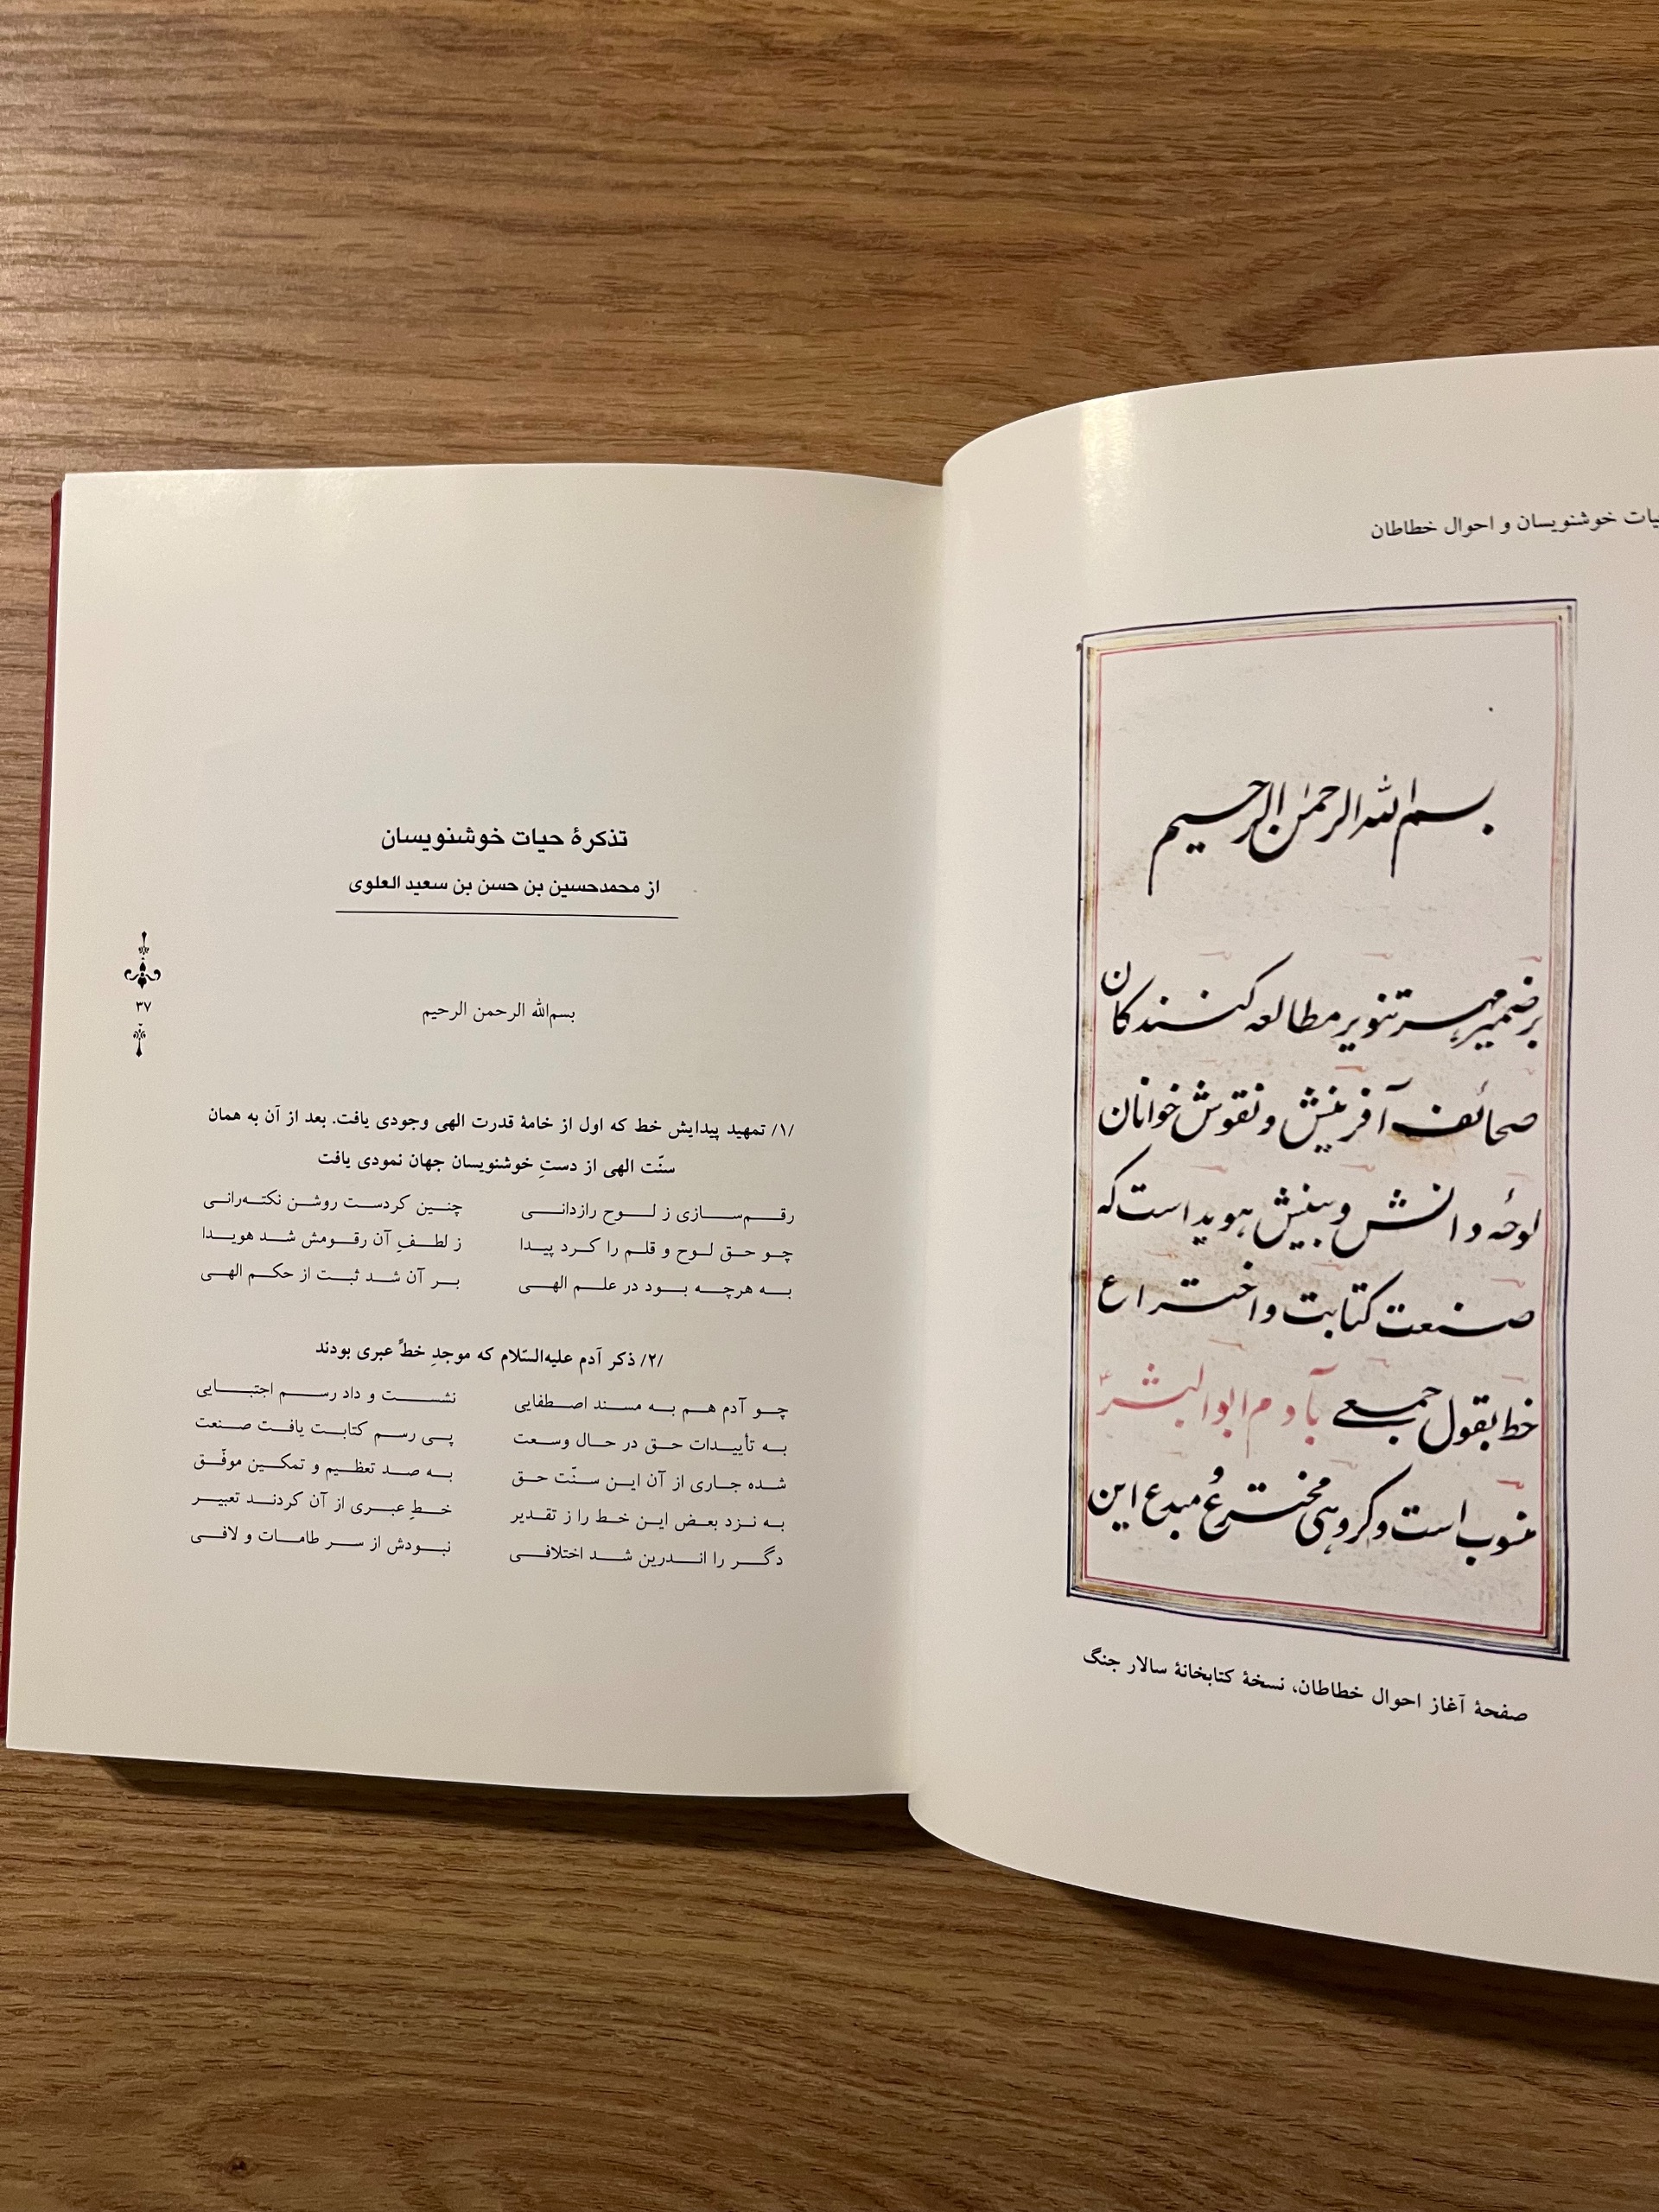 یات خوشنویسان و احوال خطاطان
بسم الله الرحمن الرحیم
بر ضمیر مهر تنویر مطالعه کنندکان
صحائف آفرینش و نقوش خوانان
لوحهٔ دانش و بینش هویداست که
صنعت کتابت و اختراع
خط بقول جمعی بآدم ابوالبشر
منسوب است و کروهی مخترعُ مبدع این
صفحهٔ آغاز احوال خطاطان، نسخهٔ کتابخانهٔ سالار جنگ
تذکرهٔ حیات خوشنویسان
از محمدحسین بن حسن بن سعید العلوی
۳۷
بسم‌الله الرحمن الرحیم
/۱/ تمهید پیدایش خط که اول از خامهٔ قدرت الهی وجودی یافت. بعد از آن به همان
سنّت الهی از دستِ خوشنویسان جهان نمودی یافت
رقم‌سازی ز لوح رازدانی چنین کردست روشن نکته‌رانی
چو حق لوح و قلم را کرد پیدا ز لطفِ آن رقومش شد هویدا
به هرچه بود در علم الهی بر آن شد ثبت از حکم الهی
/۲/ ذکر آدم علیه‌السّلام که موجدِ خطِّ عبری بودند
چو آدم هم به مسند اصطفایی نشست و داد رسم اجتبایی
به تأییدات حق در حال وسعت پی رسم کتابت یافت صنعت
شده جاری از آن این سنّت حق به صد تعظیم و تمکین موفّق
به نزد بعض این خط را ز تقدیر خطِ عبری از آن کردند تعبیر
دگر را اندرین شد اختلافی نبودش از سر طامات و لافی